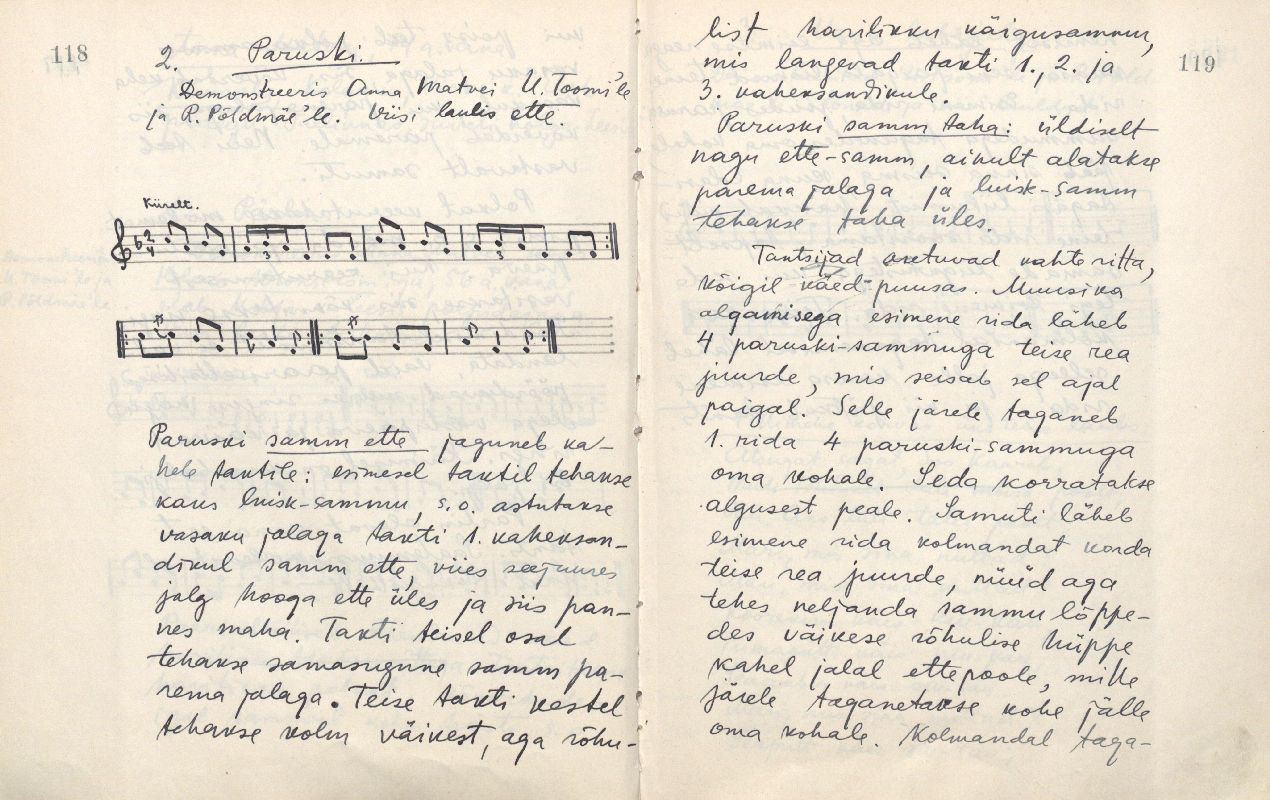 118
2. Paruski.
Demonstreeris Anna Matvei U. Toomi'le
ja R. Põldmäe'le. Viisi laulis ette.
Kiirelt.
2
4
3
3
Paruski samm ette jaguneb ka-
hele taktile: esimesel taktil tehakse
kaks luisk-sammu, s.o. astutakse
vasaku jalaga takti 1. kaheksan-
dikul samm ette, viies seejuures
jalg hooga ette üles ja siis pan-
nes maha. Takti teisel osal
tehakse samasugune samm pa-
rema jalaga. Teise takti kestel
tehakse kolm väikest, aga rõhu-
119
list harilikku käigusammu,
mis langevad takti 1., 2. ja
3. kaheksandikule.
Paruski samm taha: üldiselt
nagu ette-samm, ainult alatakse
parema jalaga ja luisk-samm
tehakse taha üles.
Tantsijad asetuvad kahte ritta,
kõigil käed puusas. Muusika
algamisega esimene rida läheb
4 paruski-sammuga teise rea
juurde, mis seisab sel ajal
paigal. Selle järele taganeb
1. rida 4 paruski-sammuga
oma kohale. Seda korratakse
algusest peale. Samuti läheb
esimene rida kolmandat korda
teise rea juurde, nüüd aga
tehes neljanda sammu lõppe-
des väikese rõhulise hüppe
kahel jalal ettepoole, mille
järele taganetakse kohe jälle
oma kohale. Kolmandal taga-